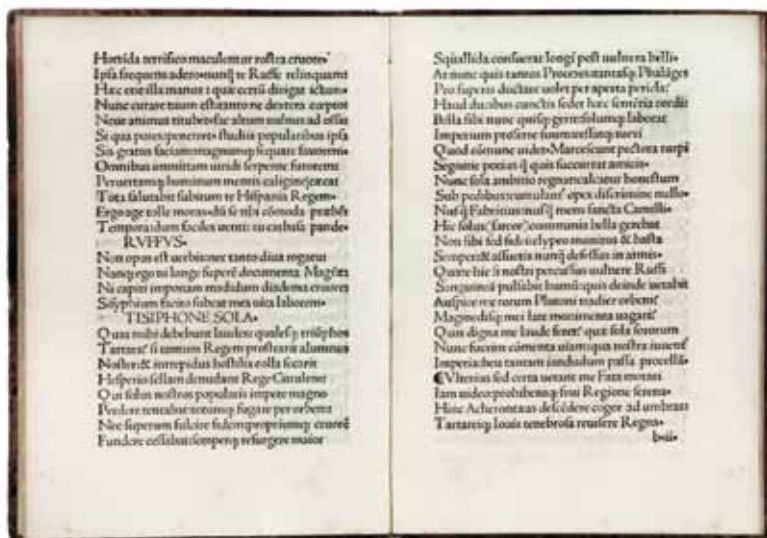 Horrida terrifico maculentur rostra cruore.
Ipsa frequens adero: nunq̃ te Ruffe relinquam
Hæc erit illa manus: quæ certũ dirigat ictum.
Nunc curare tuum est: tanto ne dextera cœpto
Neue animus titubet: fac altum uulnus ad ossa
Se qua potes penetret: studiis popularibus ipsa
Sis gratus faciam: magnumq; sequare fauorem.
Omnibus immittam uiridi serpente furorem
Peruertamq; hominum mentis caligine: creat
Tota salutabit subitum te Hispania Regem.
Ergo age tolle moras: dũ se tibi cõmoda præbẽt
Tempora: dum faciles uenti: tu carbasa pande.
RVFFVS.
Non opus est uerbis: nec tanto diua rogatu
Nanq; ego ni longe superẽ documenta Magistra
Ni capiti impositam madidum diadema cruore
Sisyphium facito subeat mea uita laborem.
TISIPHONE SOLA.
Quas mihi debebunt laudes: qualesq; triũphos
Tartara: si tantum Regem prostrarit alumnus
Noster: & intrepidus hostilia colla secarit
Hesperio sellam denudans Rege Curulem
Qui solus nostros popularis impete magno
Perdere tentabat: totumq; fugare per orbem
Nec superum fulcire fidem: propriumq; cruorẽ
Fundere cessabat: semperq; resurgere maior
Squallida consuerat longi post uulnera belli.
At nunc quis tantos Proceres tantasq; Phalãges
Pro superis ductare uolet per aperta pericla?
Haud dubiis cunctis sedet hæc sententia cordi
Bella sibi nunc quisq; gerit: solumq; laborat
Imperium proferre suum: uestatq; tueri
Quod cõmune uides. Marcescunt pectora turpi
Segnitie potius q̃ quis succurrat amicis.
Nunc sola ambitio regnat: calcatur honestum
Sub pedibus: cumulant opes discrimine nullo.
Nusq̃ Fabritius: nusq̃ mens sancta Camilli.
Hic solus (fateor) communia bella gerebat
Non sibi sed fidei: clypeo munitus & hasta
Semper: & assuetis nunq̃ defessus in armis.
Quare hic si nostri percussus uulnere Ruffi
Sanguinea pulsabit humũ: quis deinde uetabit
Auspice me totum Plutoni tradier orbem?
Magnedisq; mei late monimenta uagari?
Quin digna me laude feret: quæ sola sororum
Nunc fuerim cõmenta uiam: qua nostra iuuet
Imperia: heu tantam iandudum passa procellã.
Vlterius sed certa uetant me Fata morari
Iam uideo: prohibentq; frui Regione serena.
Hinc Acherontæas descẽdere cogor ad umbras
Tartareiq; Iouis tenebrosa reuisere Regna.
b.ii.